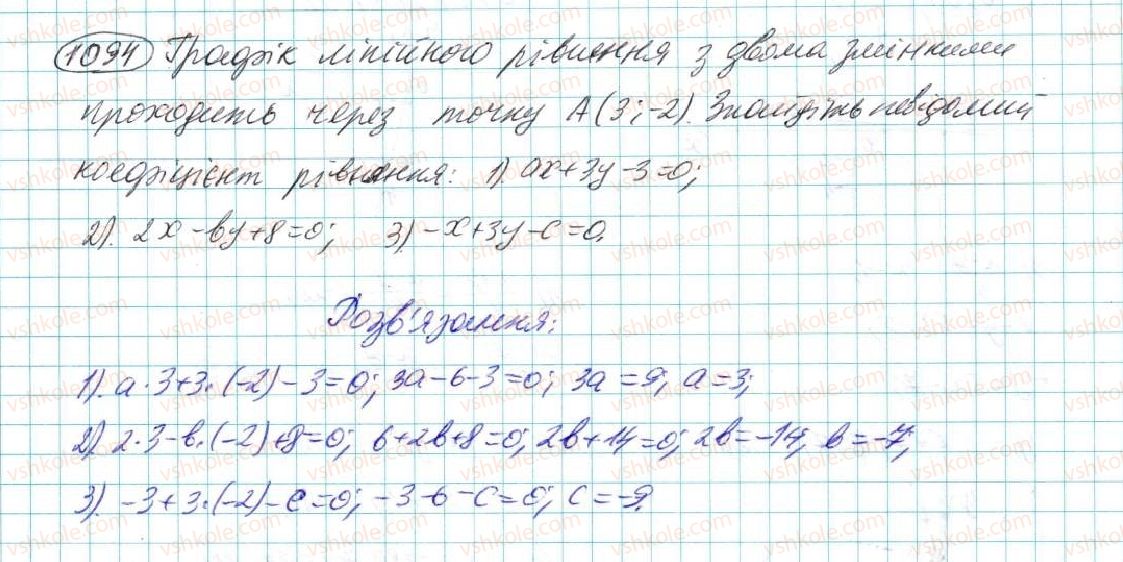 1094 Графік лінійного рівняння з двома змінними
проходить через точку A(3;-2). Знайдіть невідомий
коефіцієнт рівняння: 1). ax+3y-3=0;
2). 2x-by+8=0; 3) -x+3y-c=0.
Розв'язання:
1). a·3+3·(-2)-3=0; 3a-6-3=0; 3a=9; a=3;
2). 2·3-b·(-2)+8=0; 6+2b+8=0; 2b+14=0; 2b=-14; b=-7;
3). -3+3·(-2)-c=0; -3-6-c=0; c=-9.